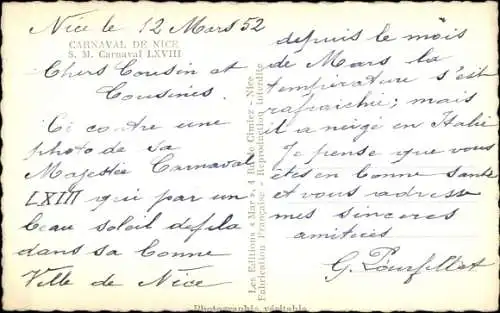 Nice le 12 Mars 52
CARNAVAL DE NICE
S. M. Carnaval LXVIII
Chers Cousin et
Cousines.
Ci contre une
photo de sa
Majestée Carnaval
LXIII qui par un
beau soleil défila
dans sa bonne
Ville de Nice
depuis le mois
de Mars la
température s'est
rafraichie; mais
il a neigé en Italie
Je pense que vous
êtes en bonne santé
et vous adresse
mes sinceres
amitiées
G.
Les Editions «Mar», 4 Retro Cimiez - Nice
Fabrication Française - Reproduction interdite
Photographie véritable